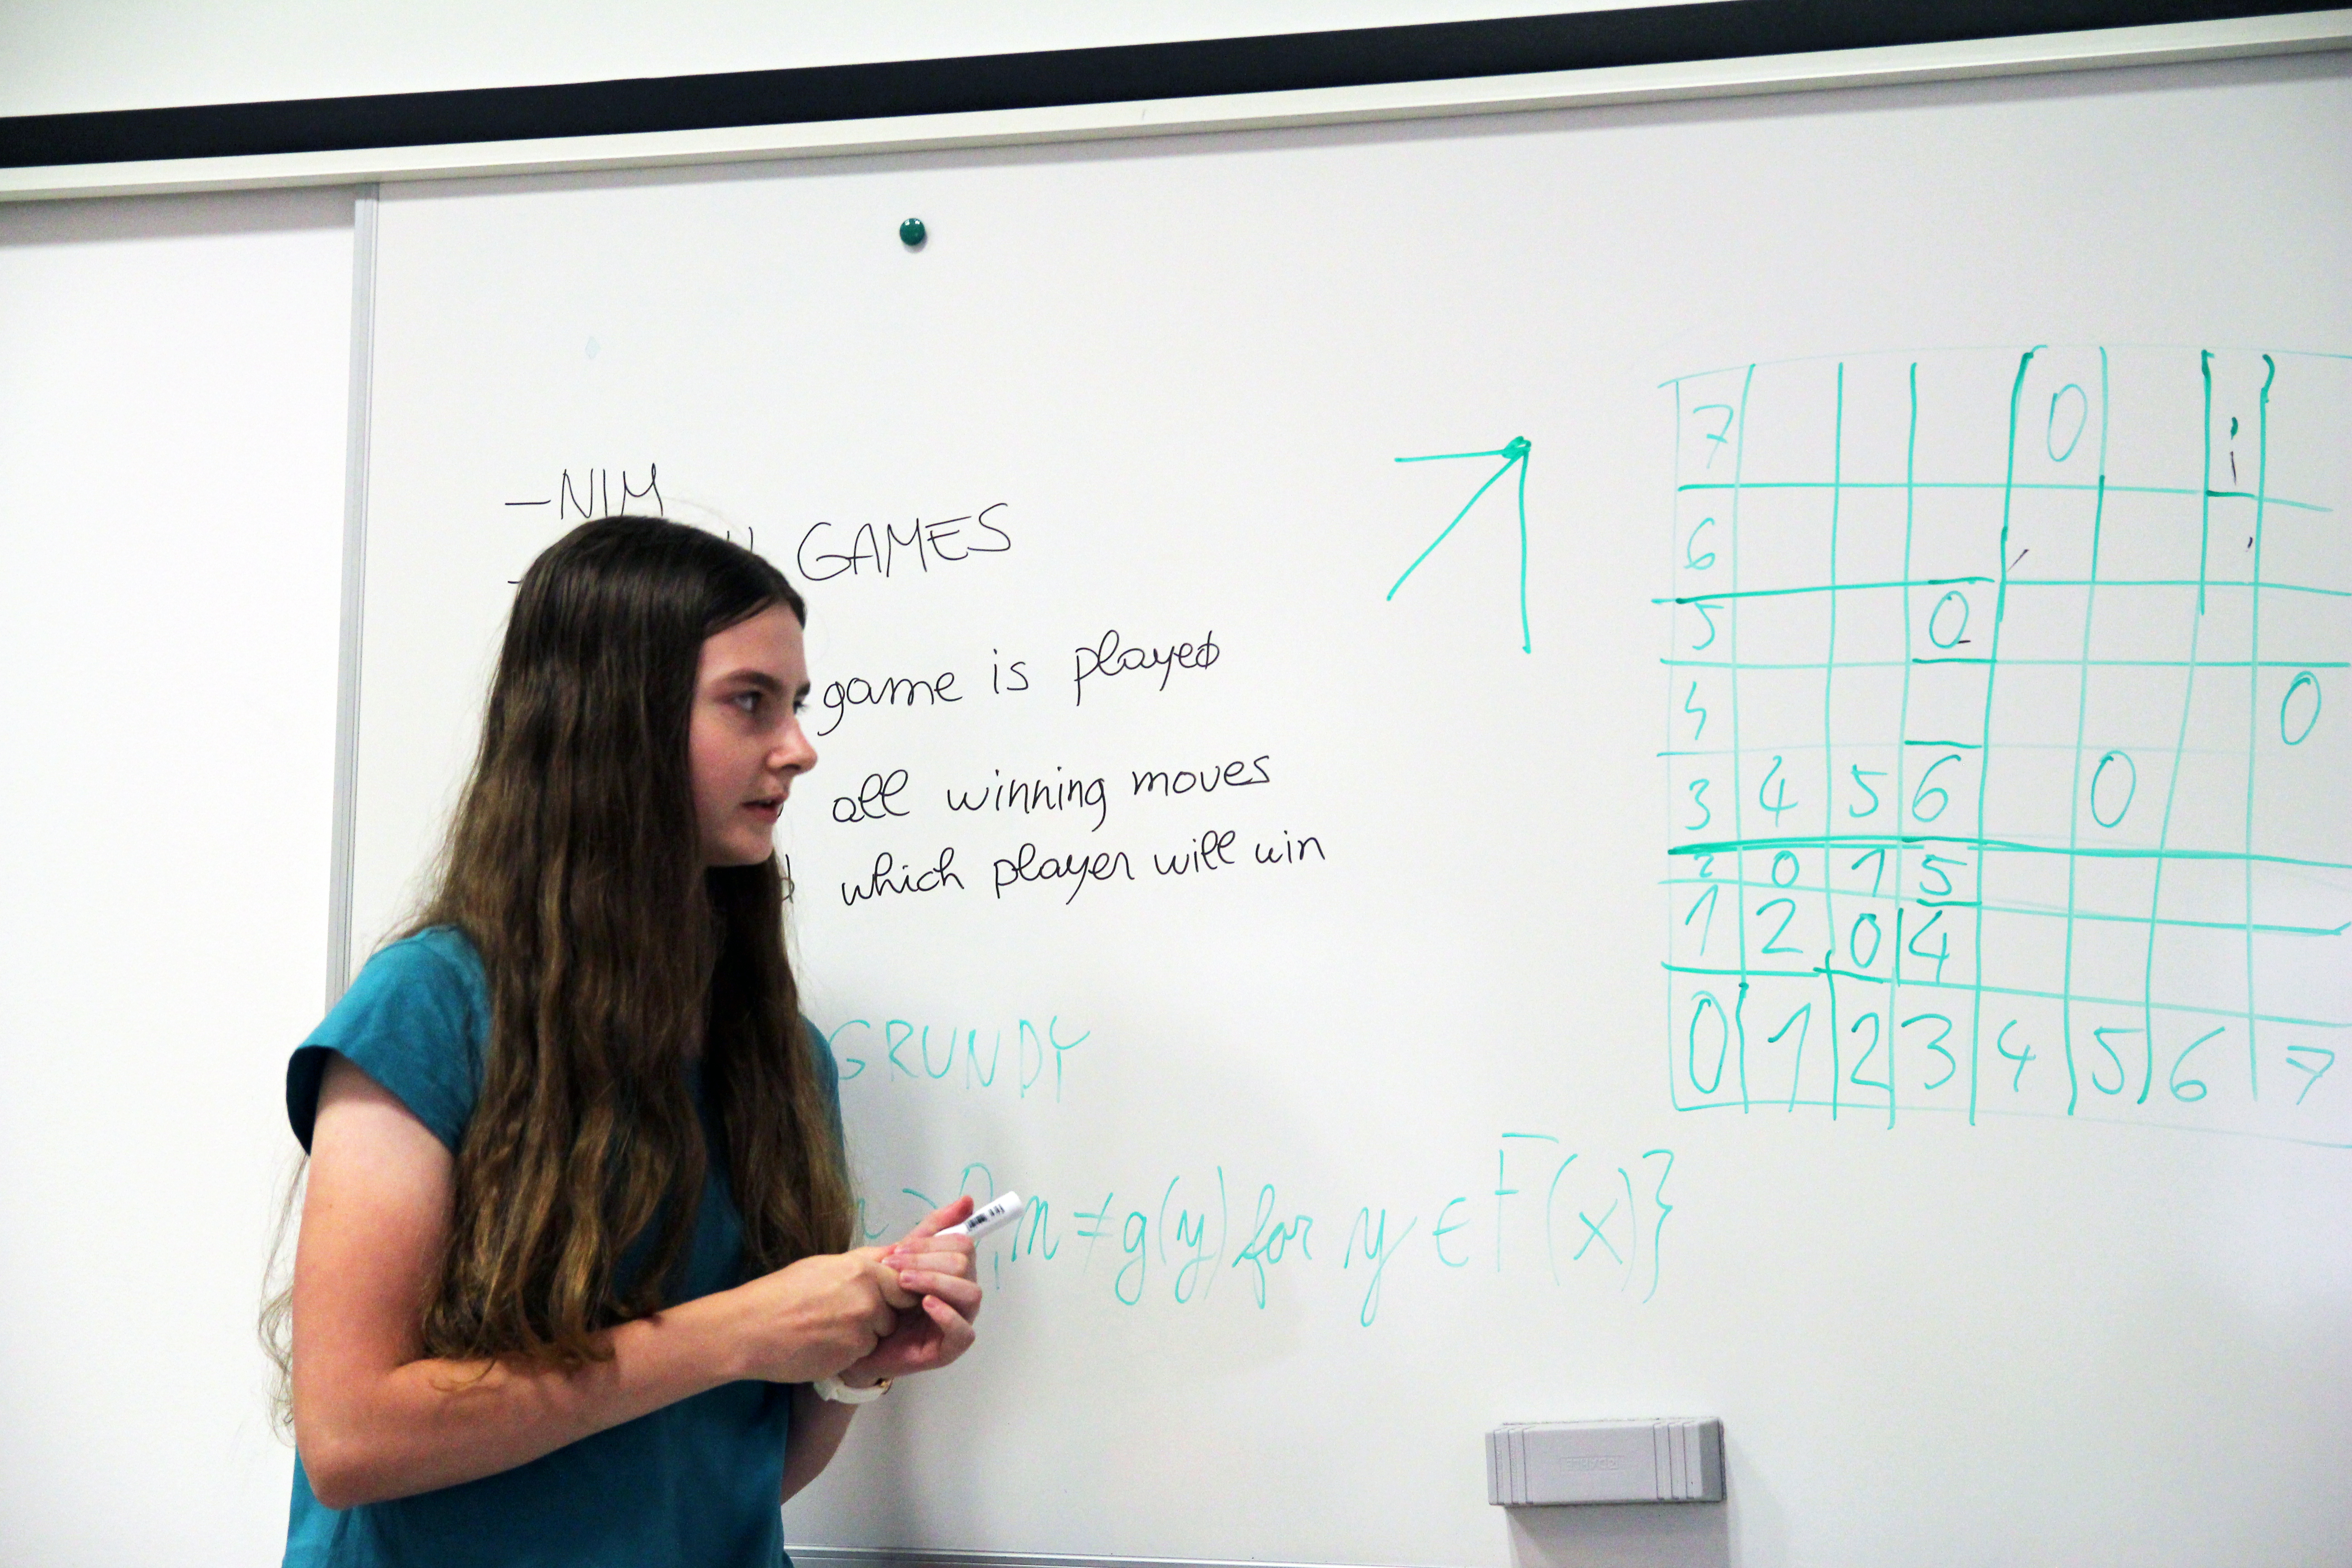 -NIM
GAMES
game is played
all winning moves
which player will win
GRUNDY
m≠g(y) for y ∈ F(x)}
7 0
6
5 0
4 0
3 4 5 6 0
2 0 1 5
1 2 0 4
0 1 2 3 4 5 6 7